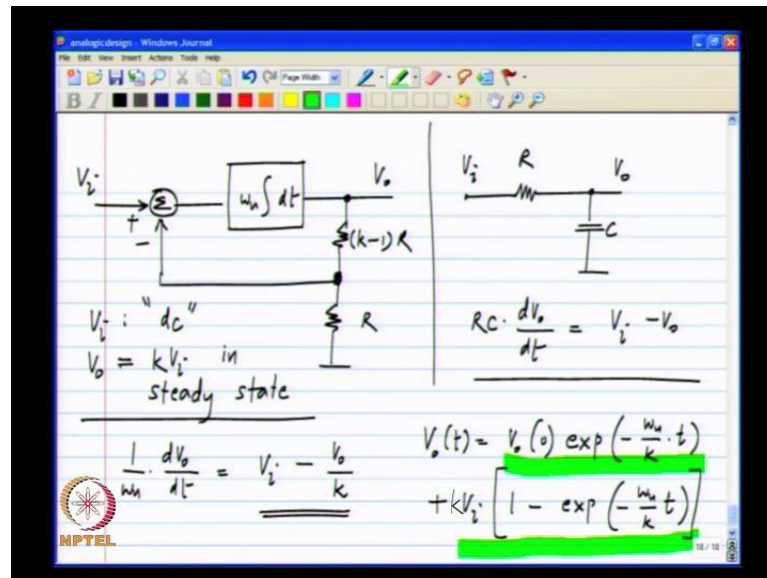 analogicdesign - Windows Journal
File Edit View Insert Actions Tools Help
Page Width
B I
V_i
+
-
Σ
ω_u ∫ dt
V_o
(k-1) R
R
V_i : "dc"
V_o = k V_i in
steady state
1/ω_u · dV_o/dt = V_i - V_o/k
V_i
R
V_o
C
RC · dV_o/dt = V_i - V_o
V_o(t) = V_o(0) exp(- ω_u/k · t)
+ k V_i [1 - exp(- ω_u/k t)]
NPTEL
18 / 18